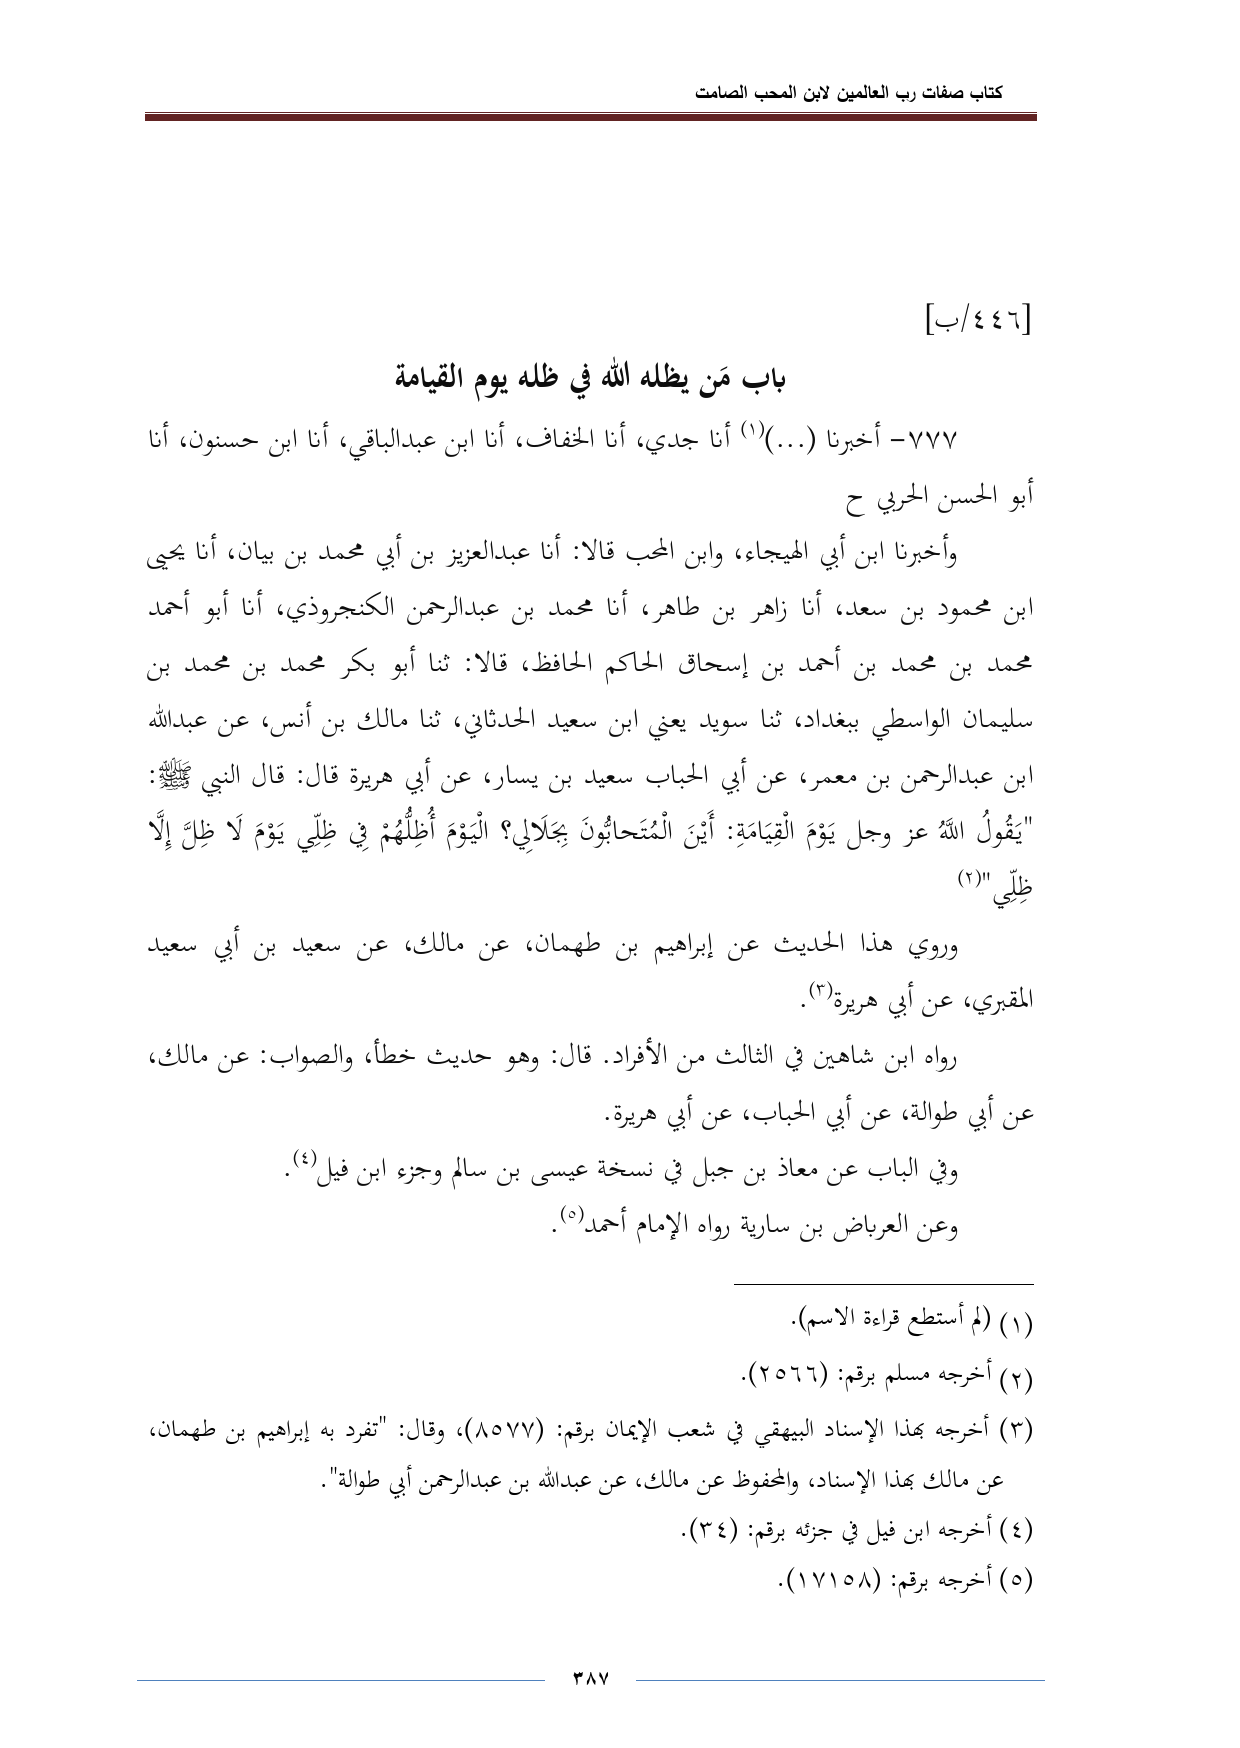 كتاب صفات رب العالمين لابن المحب الصامت
[٤٤٦/ب]
باب مَن يظله الله في ظله يوم القيامة
٧٧٧- أخبرنا (...)(١) أنا جدي، أنا الخفاف، أنا ابن عبدالباقي، أنا ابن حسنون، أنا
أبو الحسن الحربي ح
وأخبرنا ابن أبي الهيجاء، وابن المحب قالا: أنا عبدالعزيز بن أبي محمد بن بيان، أنا يحيى
ابن محمود بن سعد، أنا زاهر بن طاهر، أنا محمد بن عبدالرحمن الكنجروذي، أنا أبو أحمد
محمد بن محمد بن أحمد بن إسحاق الحاكم الحافظ، قالا: ثنا أبو بكر محمد بن محمد بن
سليمان الواسطي ببغداد، ثنا سويد يعني ابن سعيد الحدثاني، ثنا مالك بن أنس، عن عبدالله
ابن عبدالرحمن بن معمر، عن أبي الحباب سعيد بن يسار، عن أبي هريرة قال: قال النبي ﷺ:
"يَقُولُ اللَّهُ عز وجل يَوْمَ الْقِيَامَةِ: أَيْنَ الْمُتَحابُّونَ بِجَلَالِي؟ الْيَوْمَ أُظِلُّهُمْ فِي ظِلِّي يَوْمَ لَا ظِلَّ إِلَّا
ظِلِّي"(٢)
وروي هذا الحديث عن إبراهيم بن طهمان، عن مالك، عن سعيد بن أبي سعيد
المقبري، عن أبي هريرة(٣).
رواه ابن شاهين في الثالث من الأفراد. قال: وهو حديث خطأ، والصواب: عن مالك،
عن أبي طوالة، عن أبي الحباب، عن أبي هريرة.
وفي الباب عن معاذ بن جبل في نسخة عيسى بن سالم وجزء ابن فيل(٤).
وعن العرباض بن سارية رواه الإمام أحمد(٥).
(١) (لم أستطع قراءة الاسم).
(٢) أخرجه مسلم برقم: (٢٥٦٦).
(٣) أخرجه بهذا الإسناد البيهقي في شعب الإيمان برقم: (٨٥٧٧)، وقال: "تفرد به إبراهيم بن طهمان،
عن مالك بهذا الإسناد، والمحفوظ عن مالك، عن عبدالله بن عبدالرحمن أبي طوالة".
(٤) أخرجه ابن فيل في جزئه برقم: (٣٤).
(٥) أخرجه برقم: (١٧١٥٨).
٣٨٧